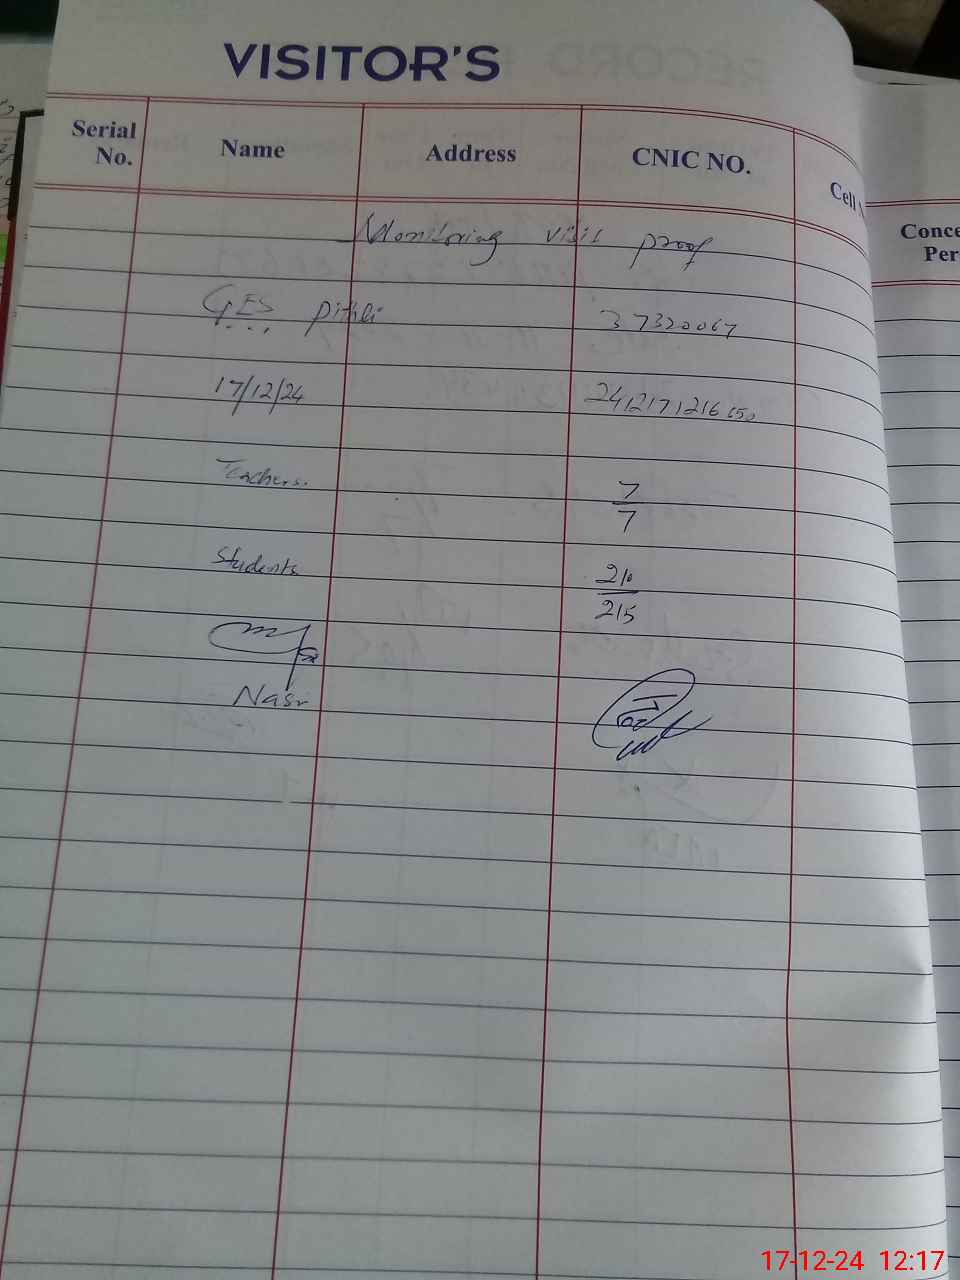 VISITOR'S
Serial No. Name Address CNIC NO. Cell
Conce
Per
Monitoring visit proof
GES Pithli 37320067
17/12/24 2412171216650
Teachers. 7/7
Students 210/215
Nasir
17-12-24 12:17